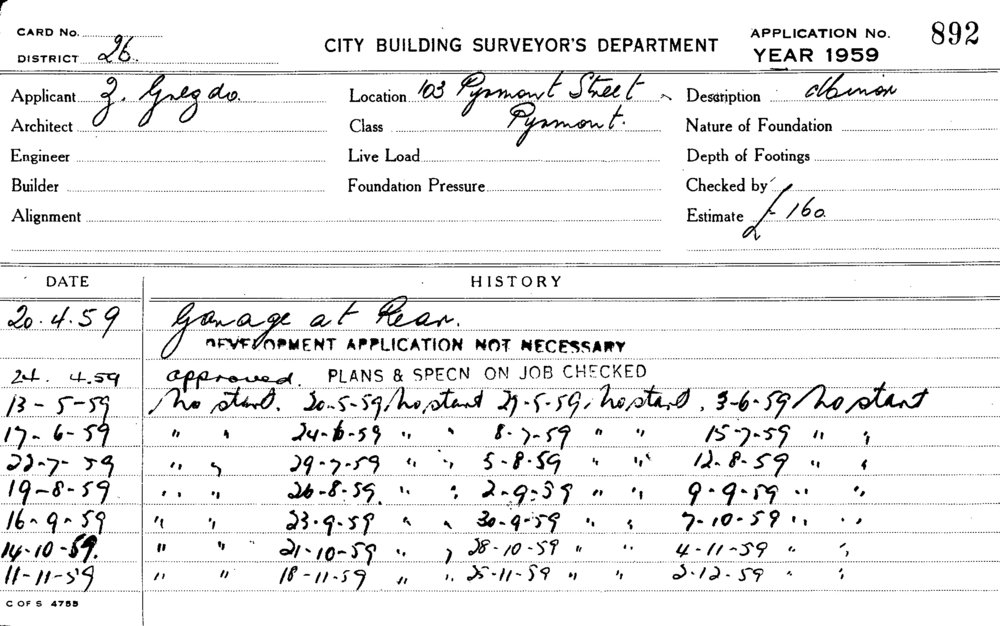 CARD No.
DISTRICT 26.
CITY BUILDING SURVEYOR'S DEPARTMENT
APPLICATION No. 892
YEAR 1959
Applicant Z. Gregdo. Location 103 Pyrmont Street Description Minor
Architect Class Pyrmont. Nature of Foundation
Engineer Live Load Depth of Footings
Builder Foundation Pressure Checked by
Alignment Estimate £160
DATE HISTORY
20.4.59 Garage at Rear.
DEVELOPMENT APPLICATION NOT NECESSARY
24. 4.59 approved. PLANS & SPECN ON JOB CHECKED
13-5-59 No start. 20-5-59, No start 27-5-59, No start, 3-6-59 No start
17-6-59 " " 24-6-59 " " 8-7-59 " " 15-7-59 " "
22-7-59 " " 29-7-59 " " 5-8-59 " " 12-8-59 " "
19-8-59 " " 26-8-59 " " 2-9-59 " " 9-9-59 " "
16-9-59 " " 23-9-59 " " 30-9-59 " " 7-10-59 " "
14-10-59. " " 21-10-59 " " 28-10-59 " " 4-11-59 " "
11-11-59 " " 18-11-59 " " 25-11-59 " " 2-12-59 " "
C OF S 4755